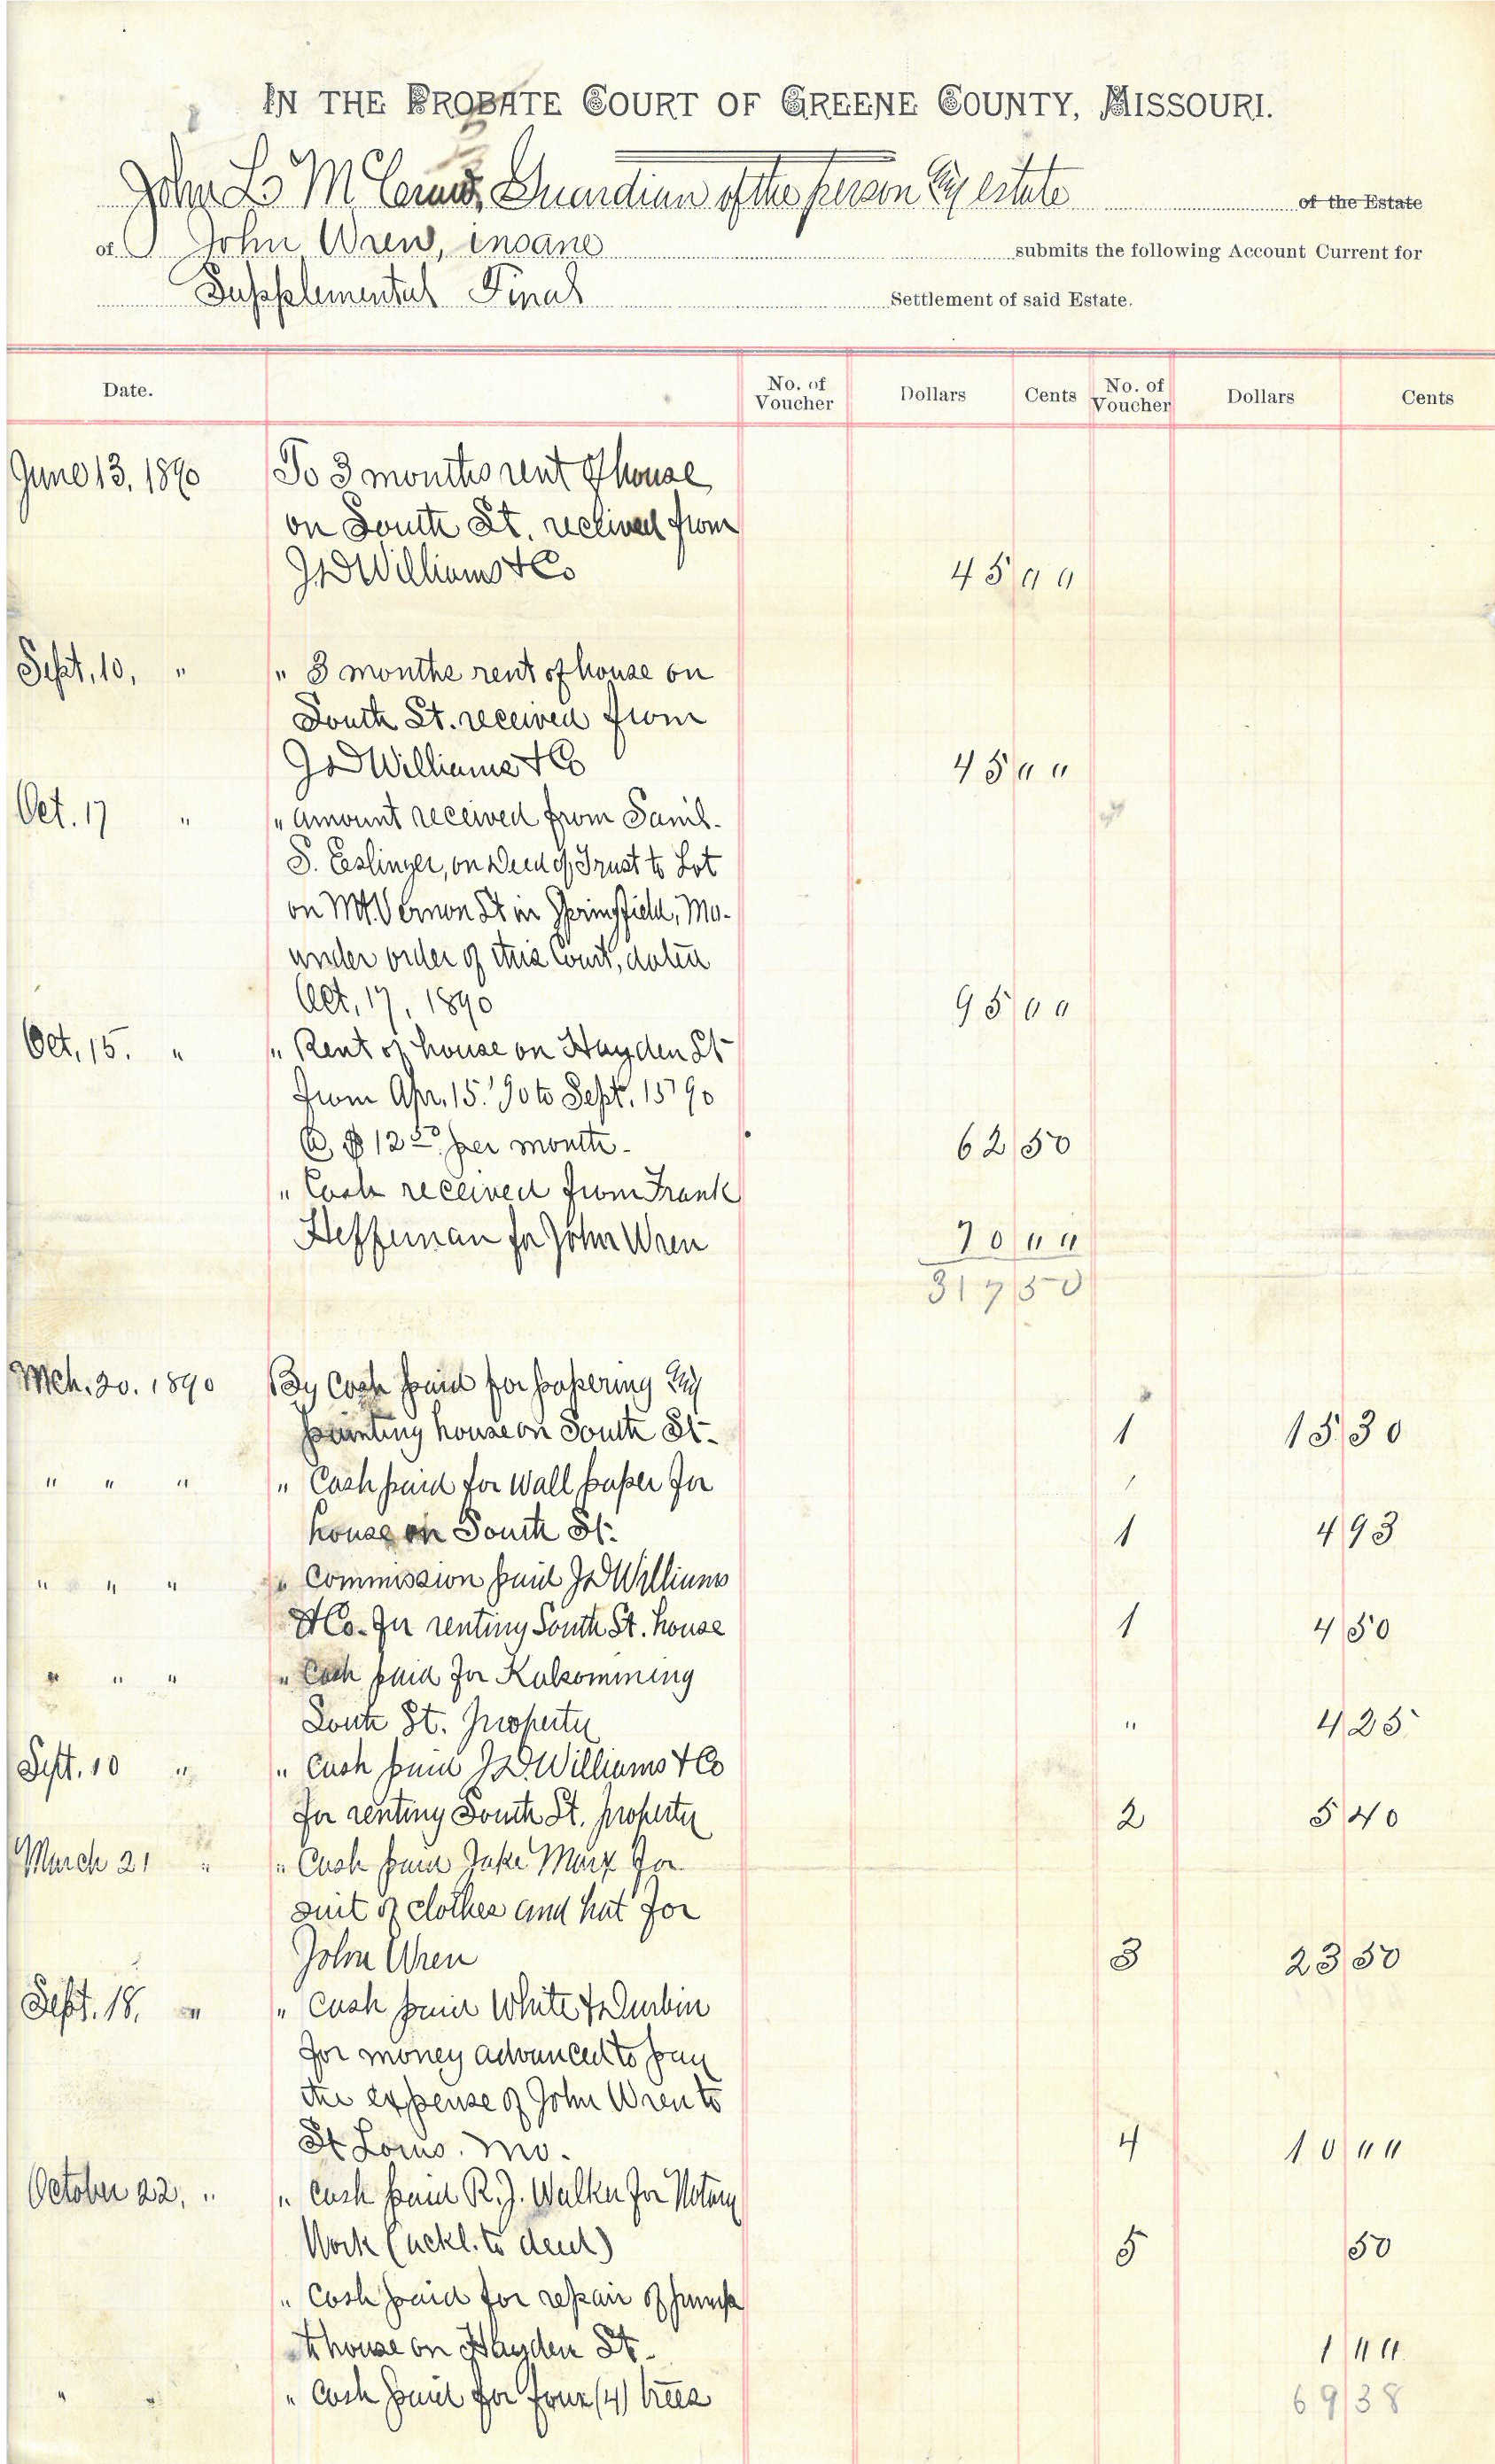 IN THE PROBATE COURT OF GREENE COUNTY, MISSOURI.
John L. Guardian of the person & estate of the Estate
of John Wren, insane submits the following Account Current for
Supplemental Final Settlement of said Estate.
Date. No. of Voucher Dollars Cents No. of Voucher Dollars Cents
June 13, 1890 To 3 months rent of house
on South St. received from
JD Williams & Co 45 " "
Sept. 10, " " 3 months rent of house on
South St. received from
JD Williams & Co 45 " "
Oct. 17 " " amount received from Saml.
S. Eslinger, on Deed of Trust to Lot
on Mt. Vernon St in Springfield, Mo.
under order of this court, dated
Oct. 17, 1890 95 " "
Oct. 15. " " Rent of house on Hayden St
from Apr. 15. '90 to Sept. 15 '90
@ $12 50 per month. 62 50
" Cash received from Frank
Heffernan for John Wren 70 " "
317 50
Mch. 20. 1890 By Cash paid for papering &
painting house on South St. 1 15 30
" " " " Cash paid for wall paper for
house on South St. 1 4 93
" " " " Commission paid JD Williams
& Co. for renting South St. house 1 4 50
" " " " Cash paid for Kalsomining
South St. property " 4 25
Sept. 10 " " Cash paid J.D. Williams & Co
for renting South St. property 2 5 40
March 21 " " Cash paid Jake Marx for
suit of clothes and hat for
John Wren 3 23 50
Sept. 18, " " Cash paid White & Durbin
for money advanced to pay
the expense of John Wren to
St Louis. Mo. 4 10 " "
October 22, " " Cash paid R.J. Walker for Notary
Work (ackl. to deed) 5 50
" Cash paid for repair of pump
to house on Hayden St. 1 " "
" " " Cash paid for four (4) trees 69 38